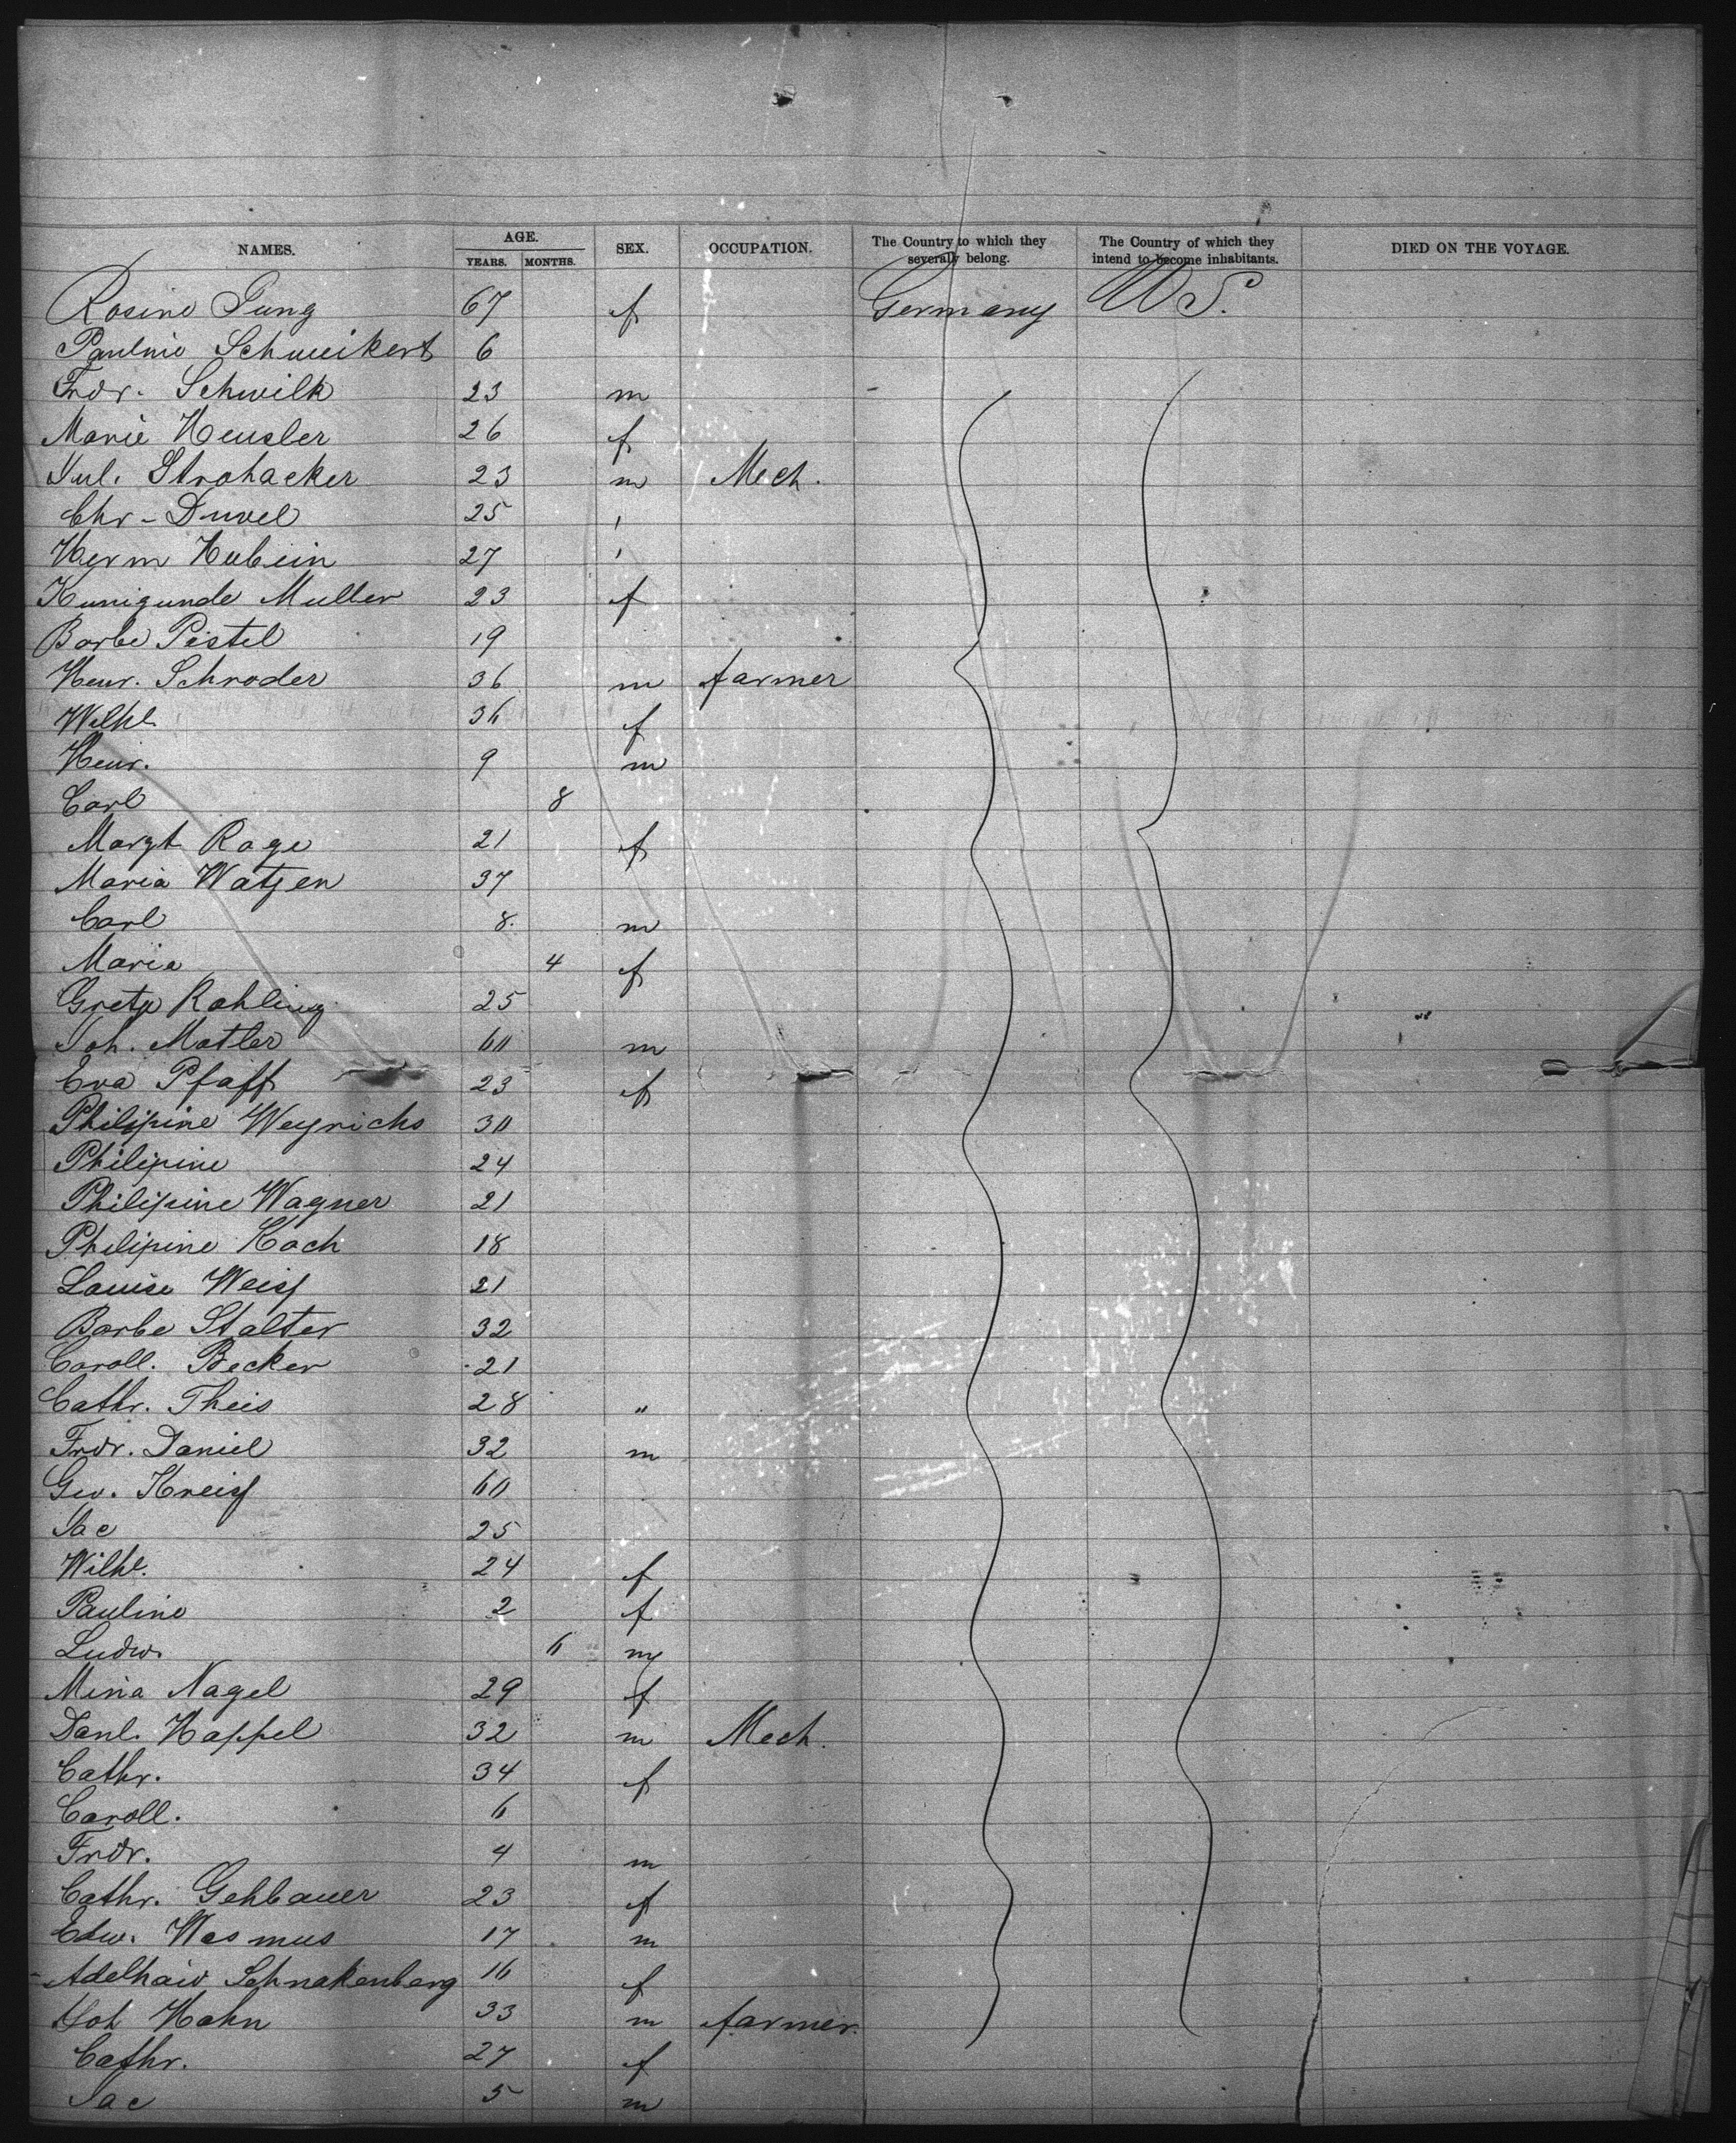 NAMES. AGE. YEARS. MONTHS. SEX. OCCUPATION. The Country to which they severally belong. The Country of which they intend to become inhabitants. DIED ON THE VOYAGE.
Rosine Jung 67 f Germany U S.
Pauline Schweikert 6
Frdr. Schwilk 23 m
Marie Heusler 26 f
Jul. Strohacker 23 m Mech.
Chr - Duvel 25 '
Herm Hubein 27 '
Kunigunde Muller 23 f
Barbe Pistel 19
Heinr. Schroder 36 m farmer
Wilhe. 36 f
Heinr. 9 m
Carl 8
Margt Rage 21 f
Maria Watjen 37
Carl 8. m
Maria 4 f
Grete Rohling 25
Joh. Motler 60 m
Eva Pfaff 23 f
Philipine Weyrichs 30
Philipine 24
Philipine Wagner 21
Philipine Koch 18
Louise Weiss 21
Barbe Stalter 32
Caroll. Becker 21
Cathr. Theis 28 "
Frdr. Daniel 32 m
Geo. Kreiss 60
Jac 25
Wilhe. 24 f
Pauline 2 f
Ludw. 6 m
Mina Nagel 29 f
Danl. Happel 32 m Mech.
Cathr. 34 f
Caroll. 6
Frdr. 4 m
Cathr. Gehbauer 23 f
Edw. Wasmus 17 m
Adelhaid Schnakenberg 16 f
Joh Hahn 33 m farmer.
Cathr. 27 f
Jac 5 m